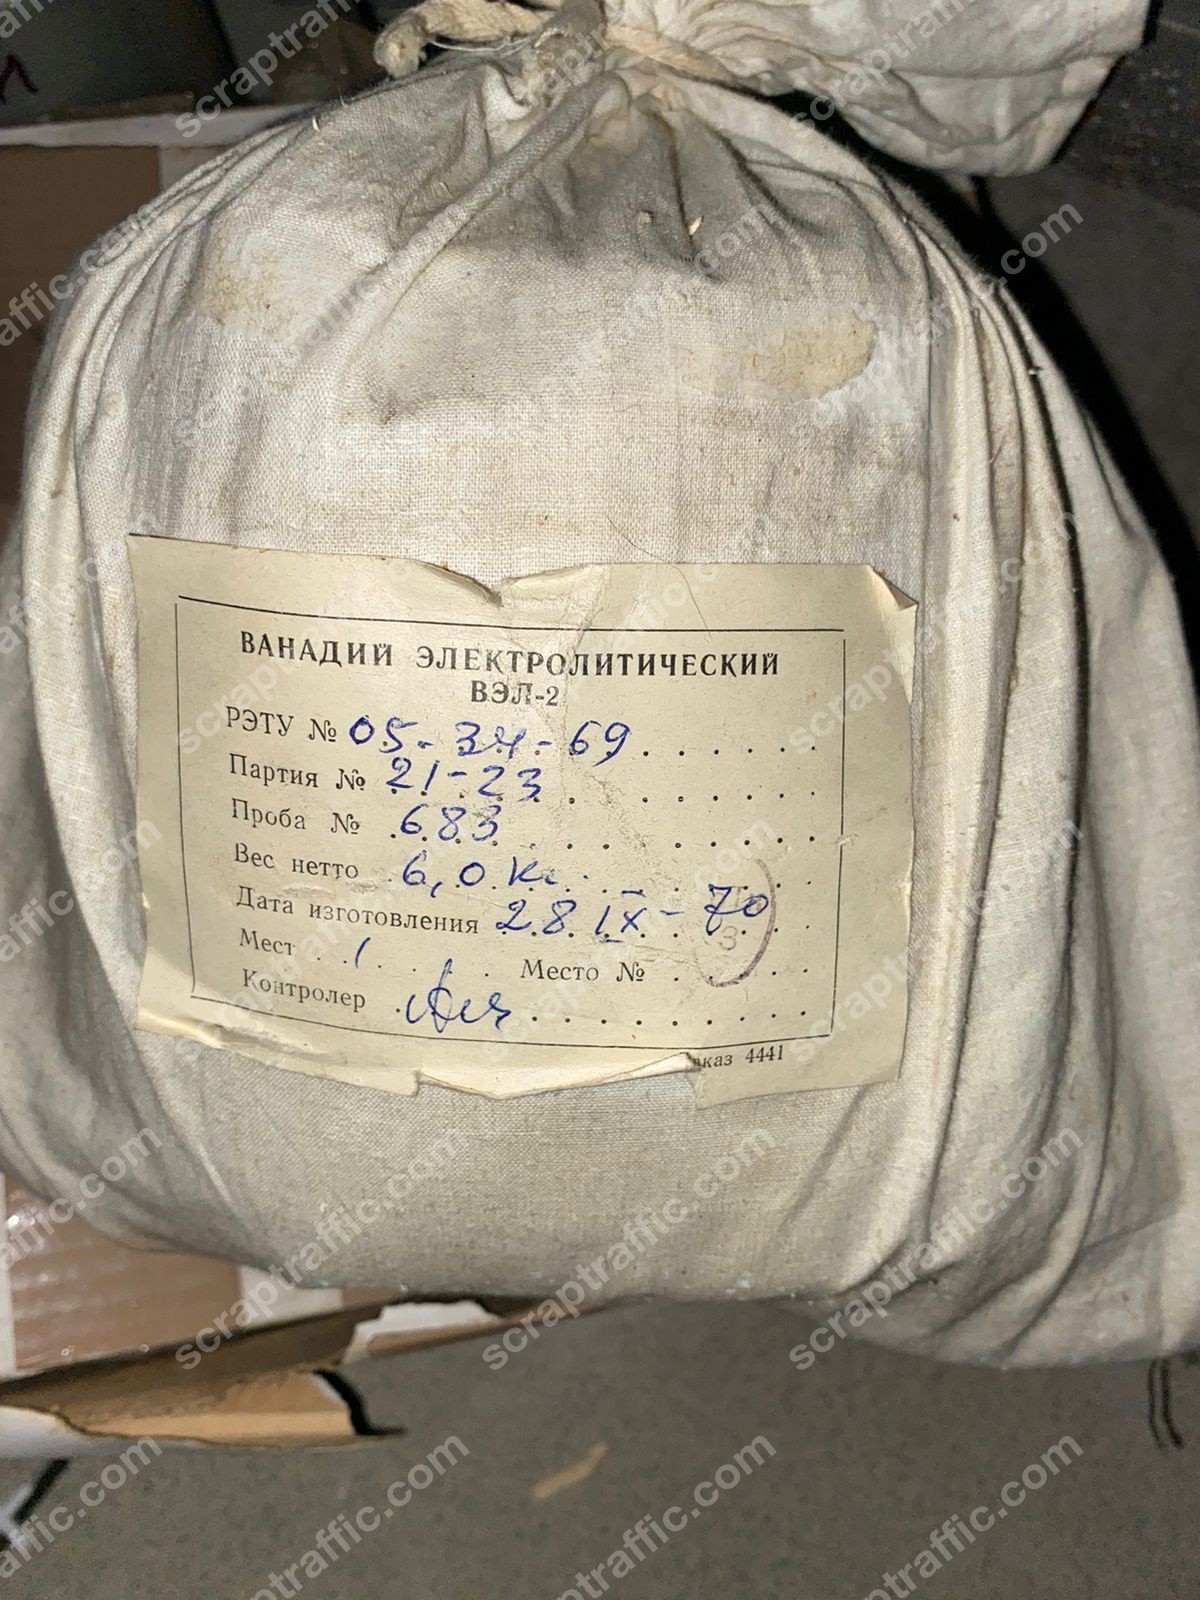 ВАНАДИЙ ЭЛЕКТРОЛИТИЧЕСКИЙ
ВЭЛ-2
РЭТУ № 05-34-69
Партия № 21-23
Проба № 683
Вес нетто 6,0 кг
Дата изготовления 28 IX-70
Мест 1 Место №
Контролер
аказ 4441
scraptraffic.com